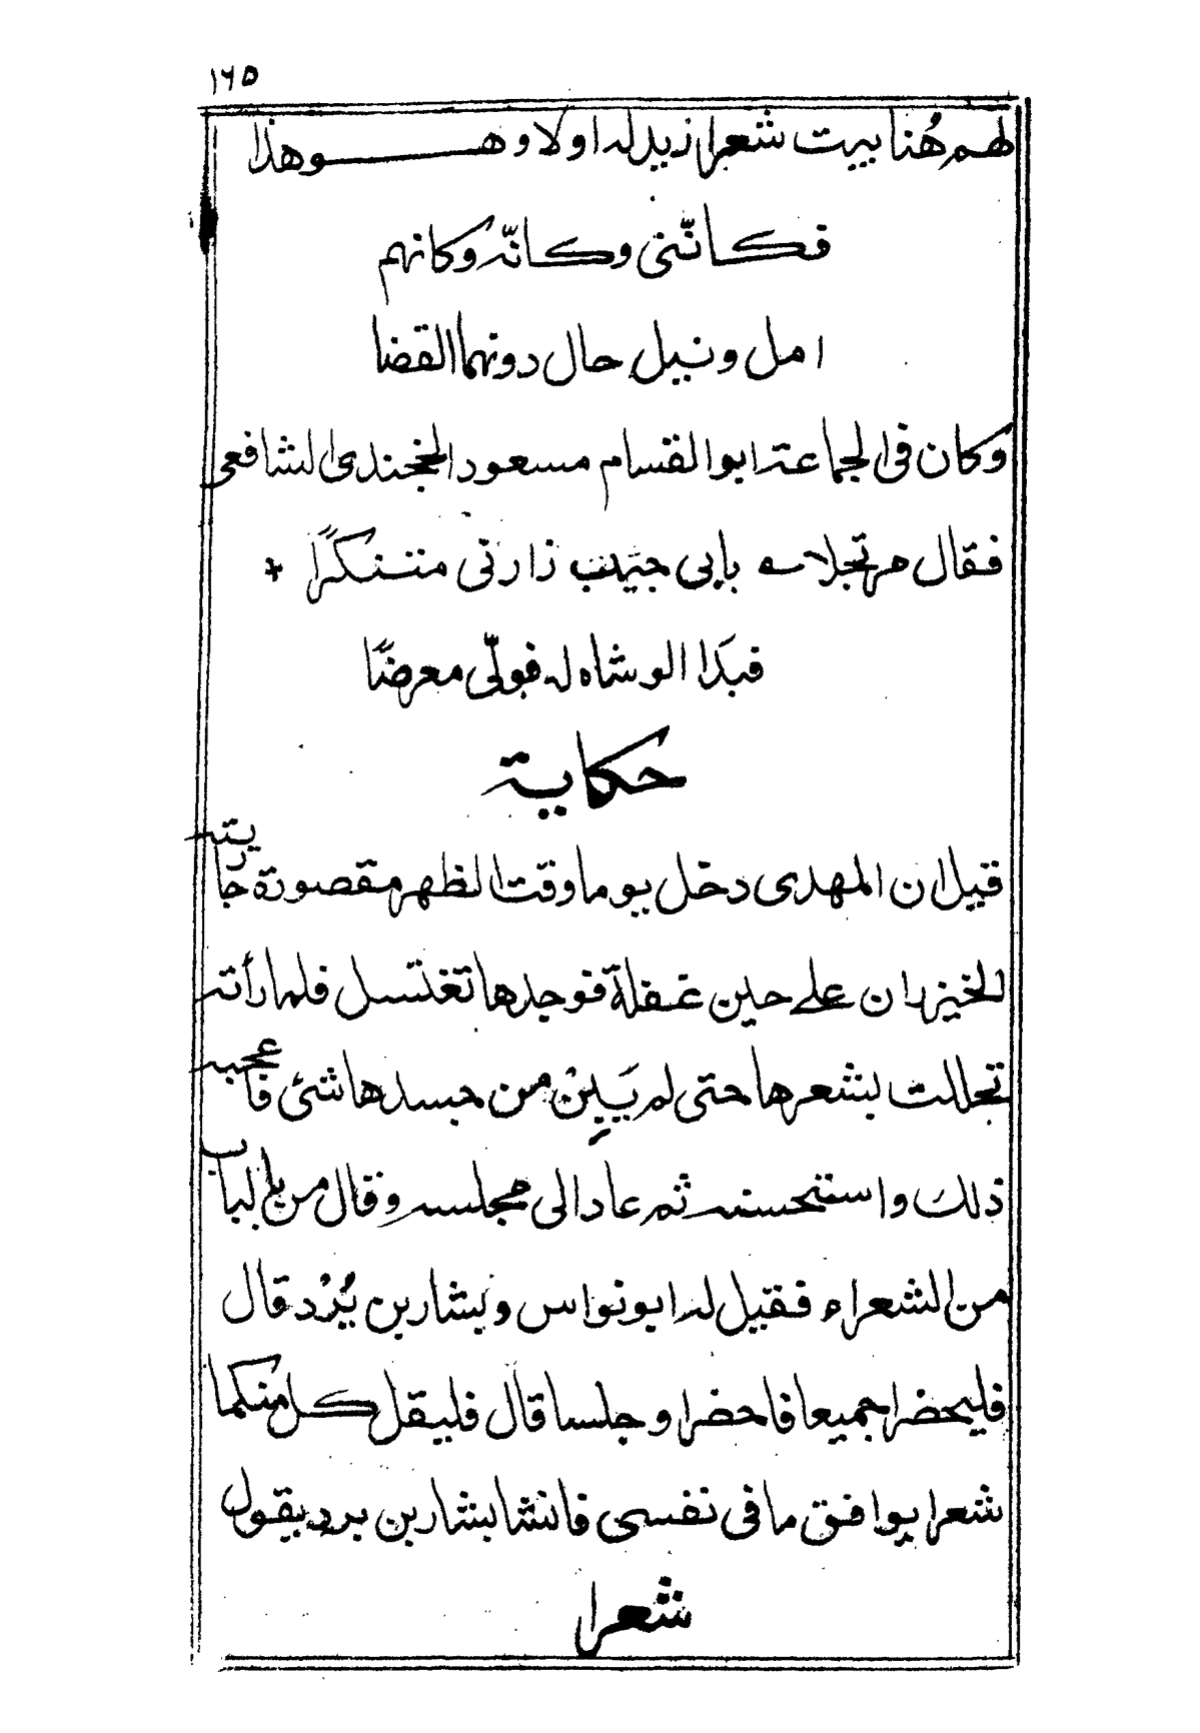 ١٦٥
لهم هُنا بيت شعرا زيد له اولا وهـــــو هذا
فكانّنى وكانّه وكانهم
امل ونيل حال دونهما القضا
وكان فى الجماعة ابو القسام مسعود الخجندى الشافعى
فقال مرتجلا بابى حبيب زارنى متنكرًا
فبَدَا الوشاه له فولّى معرضًا
حكاية
قيل ان المهدى دخل يوما وقت الظهر مقصورة جاريته
الخيزران على حين غفلة فوجدها تغتسل فلما رأته
تجللت بشعرها حتى لم يَبِينْ من جسدها شئ فاعجبه
ذلك واستحسنه ثم عاد الى مجلسه وقال من بالباب
من الشعراء فقيل له ابو نواس وبشار بن بُرْد قال
فليحضرا جميعا فاحضرا وجلسا قال فليقل كل منكما
شعرا يوافق ما فى نفسى فانشا بشار بن برد يقول
شعرا